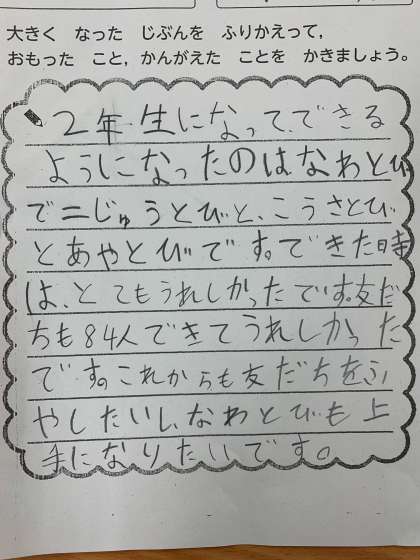 大きく なった じぶんを ふりかえって，
おもった こと，かんがえた ことを かきましょう。
２年生になって、できる
ようになったのはなわとび
で二じゅうとびと、こうさとび
とあやとびです。できた時
は、とてもうれしかったです。友だ
ちも84人できてうれしかった
です。これからも友だちをふ
やしたいし、なわとびも上
手になりたいです。